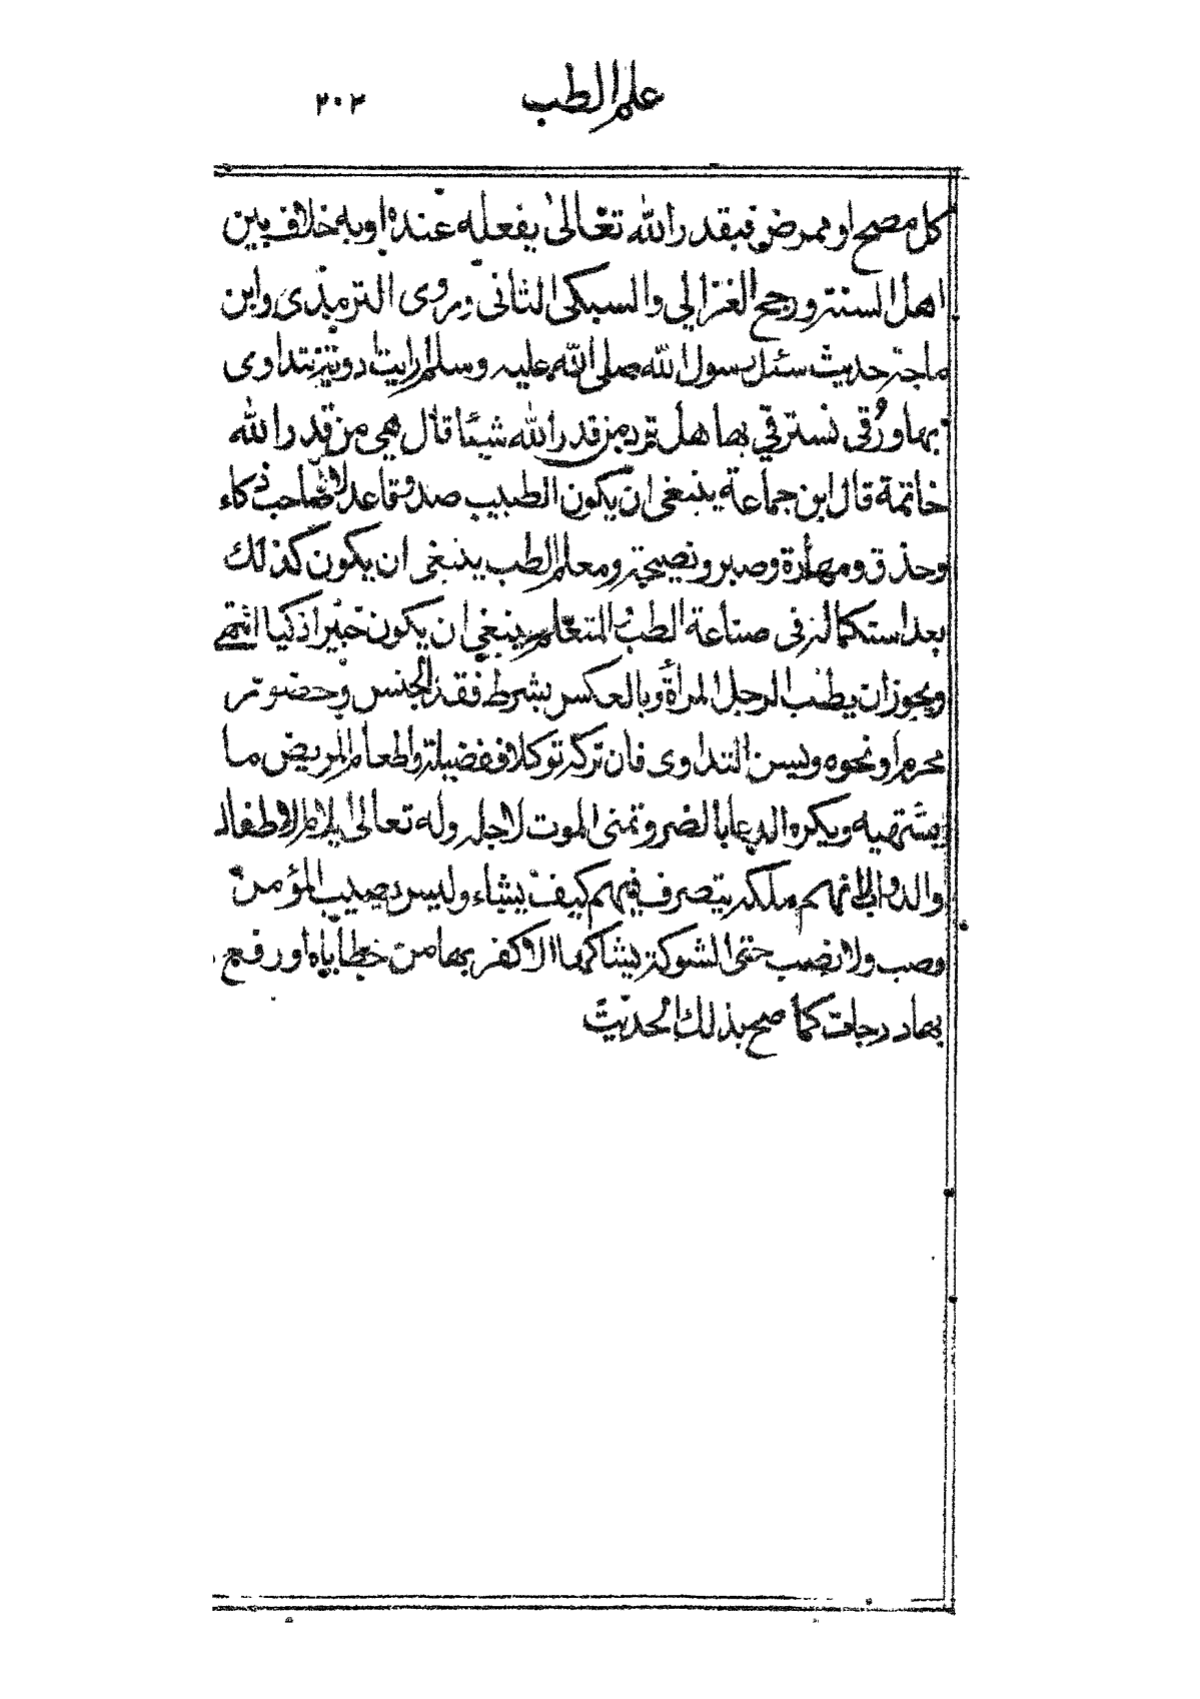 علم الطب ٢٠٢
كل مصح او ممرض فبقدر الله تعالى يفعله عنده او به خلاف بين
اهل السنة ورجح الغزالي والسبكى الثانى وروى الترمذى وابن
ماجة حديث سئل رسول الله صلى الله عليه وسلم ارايت ادوية نتداوى
بها ورُقى نسترقي بها هل ترد من قدر الله شيئا قال هى من قدر الله
خاتمة قال ابن جماعة ينبغى ان يكون الطبيب صدوقا عدلا صاحب ذكاء
وحذق ومهارة وصبر ونصيحة ومعلم الطب ينبغى ان يكون كذلك
بعد استكماله فى صناعة الطب المتعلم ينبغي ان يكون خيرا ذكيا انتهى
ويجوز ان يطب الرجل المرأة وبالعكس بشرط فقد الجنس وحضور
محرم او نحوه ويسن التداوى فان تركه توكلا ففضيلة واطعام المريض ما
يشتهيه ويكره الدعا بالضر وتمنى الموت لاجله وله تعالى ايلام الاطفال
والدواب لانهم ملكه يتصرف فيهم كيف يشاء وليس يصيب المؤمن
وصب ولا نصب حتى الشوكة يشاكها الا كفر بها من خطاياه او رفع
بها درجات كما صح بذلك الحديث